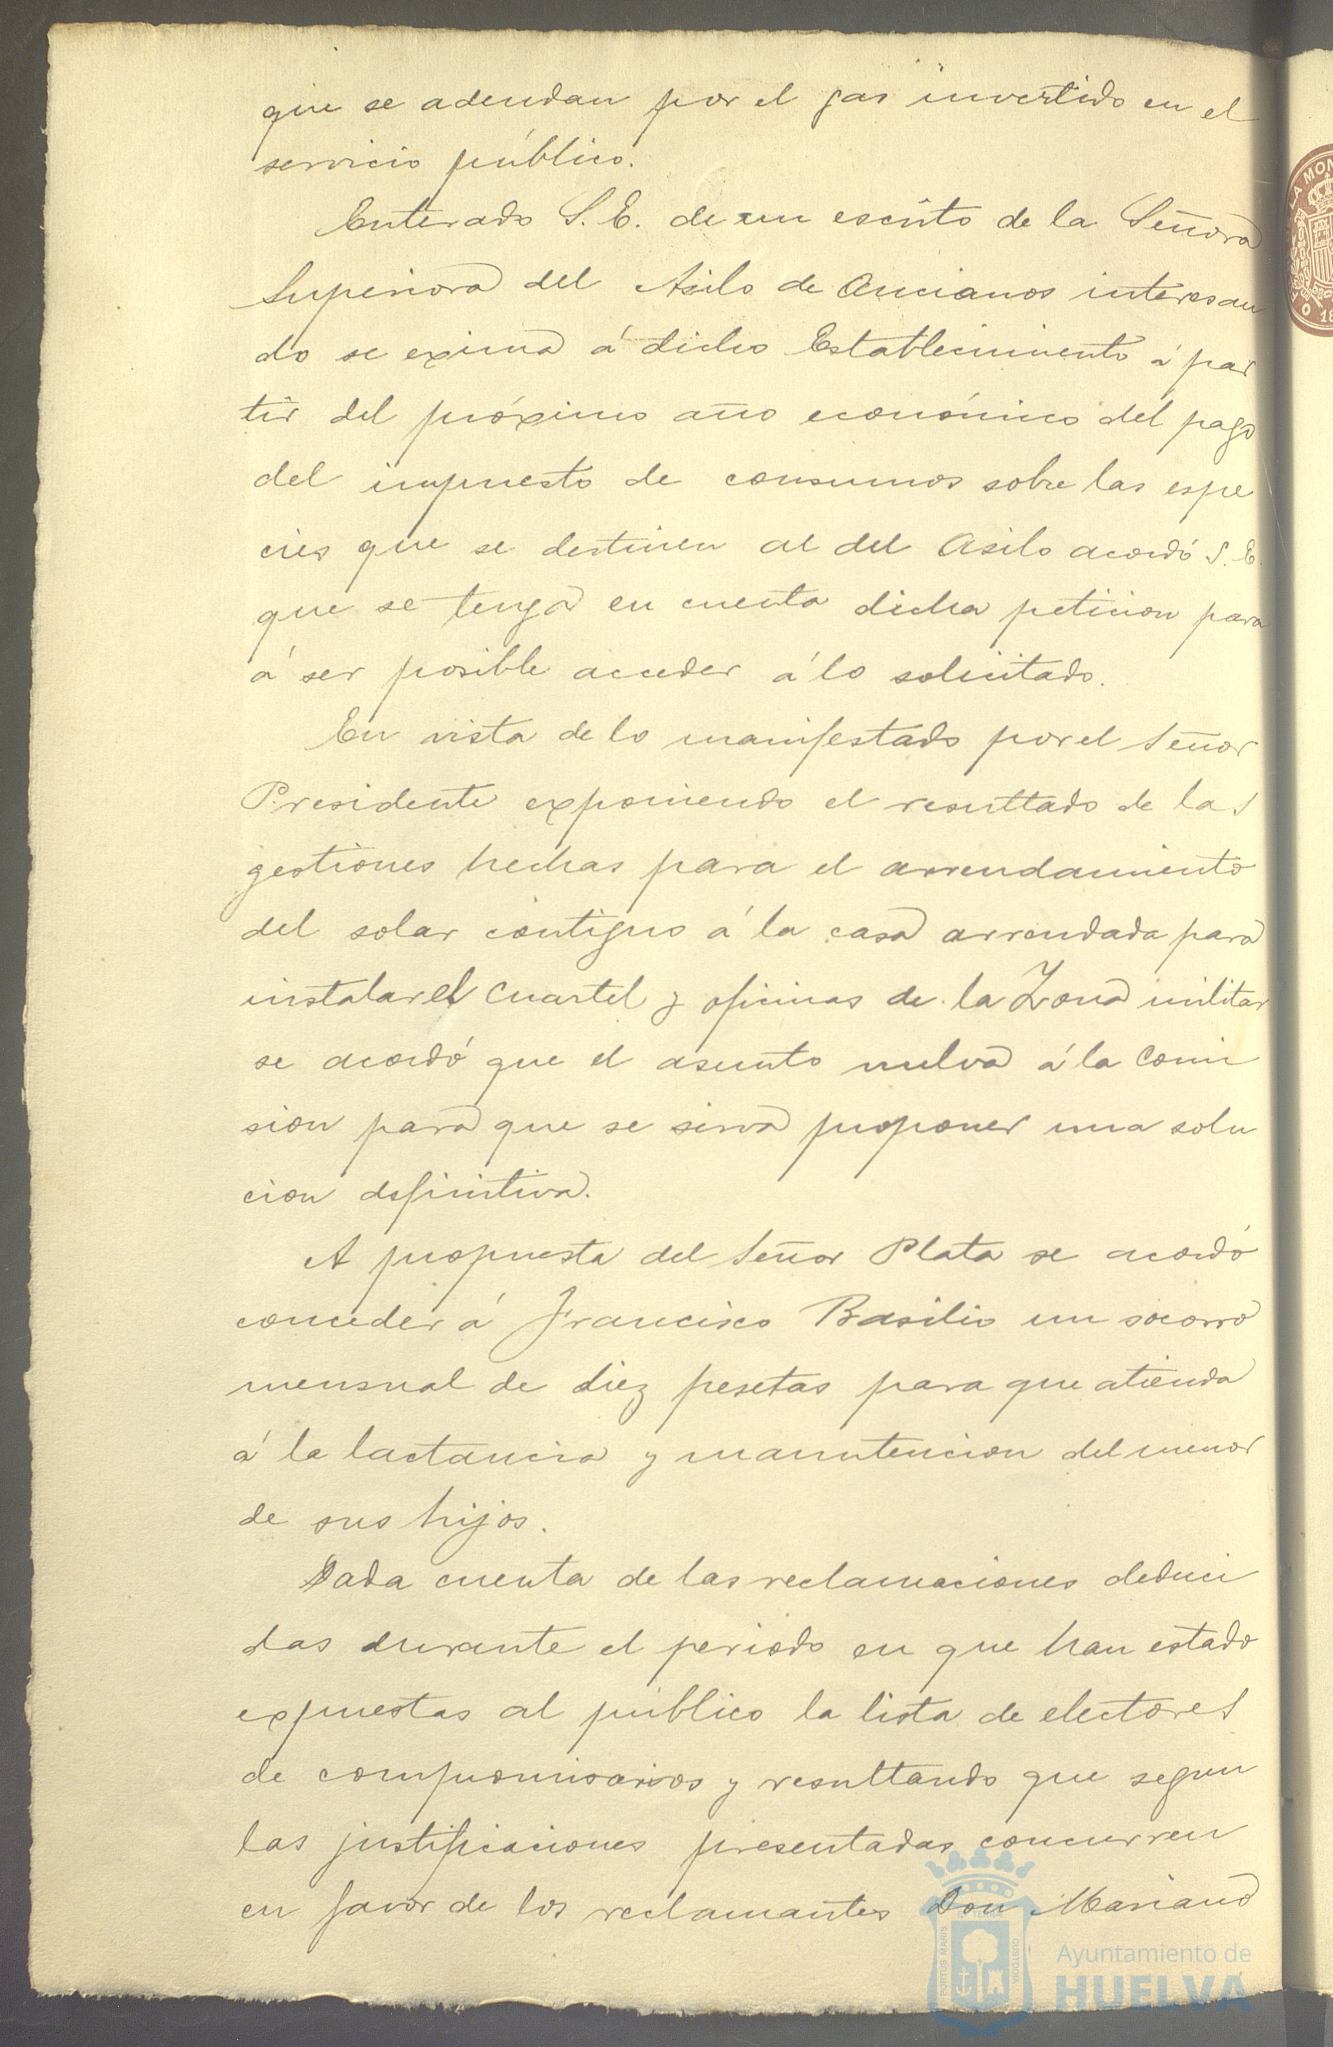 que se adeudan por el gas invertido en el
servicio público.
Enterado S. E. de un escrito de la Señora
Superiora del Asilo de Ancianos interesan
do se exima á dicho Establecimiento á par
tir del próximo año económico del pago
del impuesto de consumos sobre las espe
cies que se destinen al del Asilo acordó S. E.
que se tenga en cuenta dicha peticion para
á ser posible acceder á lo solicitado.
En vista de lo manifestado por el Señor
Presidente exponiendo el resultado de las
gestiones hechas para el arrendamiento
del solar contiguo á la casa arrendada para
instalar el Cuartel y oficinas de la Zona militar
se acordó que el asunto vuelva á la Comi
sion para que se sirva proponer una solu
cion definitiva.
A propuesta del Señor Plata se acordó
conceder á Francisco Basilio un socorro
mensual de diez pesetas para que atienda
á la lactancia y manutencion del menor
de sus hijos.
Dada cuenta de las reclamaciones deduci
das durante el periodo en que han estado
expuestas al público la lista de electores
de compromisarios y resultando que segun
las justificaciones presentadas concurren
en favor de los reclamantes Don Mariano
PORTUS MARIS
CUSTODIA
Ayuntamiento de
HUELVA